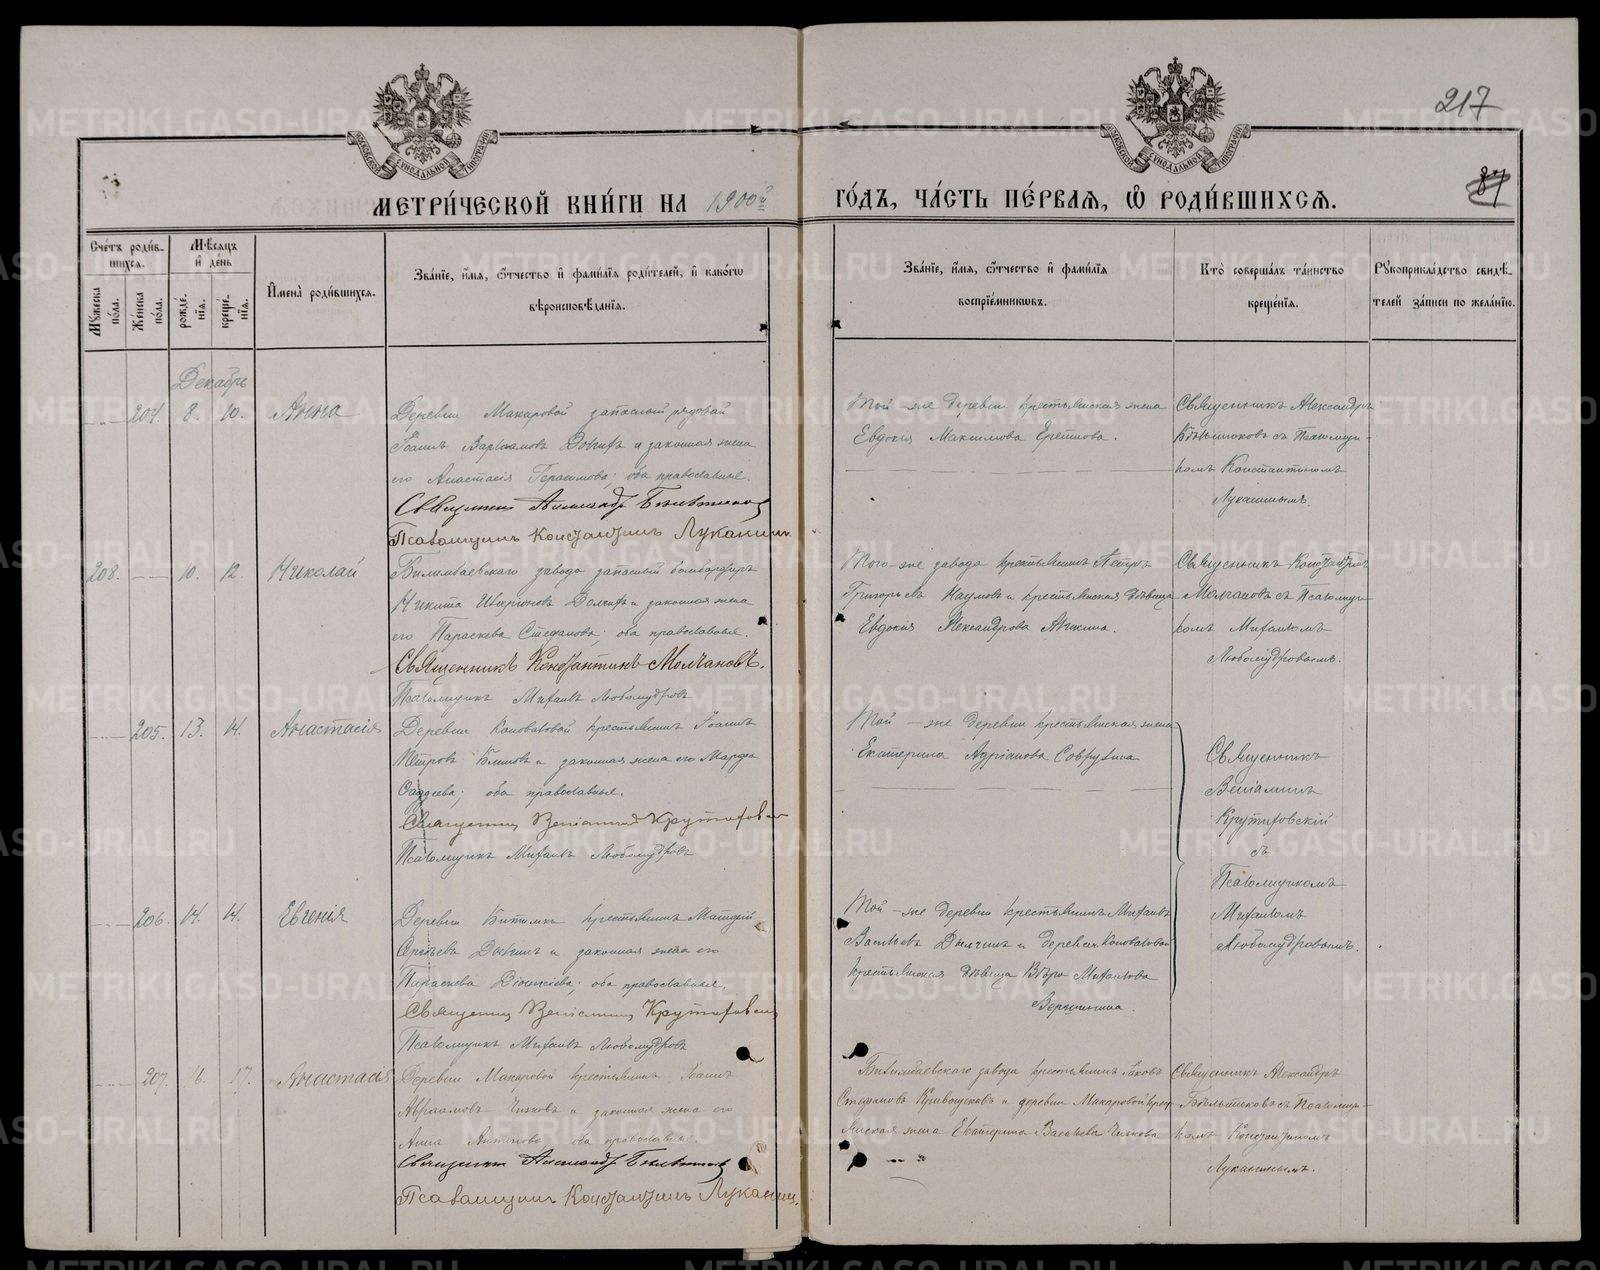 217
87
МЕТРИ́ЧЕСКОЙ КНИ́ГИ НА 1900й ГО́ДЪ, ЧА́СТЬ ПЕ́РВАѦ, Ѽ РОДИ́ВШИХСѦ.
Сче́тъ роди́вшихсѧ.
Мꙋ́жеска по́ла.
Же́нска по́ла.
Мѣ́сѧцъ и де́нь
рожде́нїѧ.
креще́нїѧ.
Имена̀ роди́вшихсѧ.
Зва́нїе, и́мѧ, ѻ́тчество и фами́лїѧ роди́телей, и како́гѡ
вѣроисповѣ́данїѧ.
Зва́нїе, и́мѧ, ѻ́тчество и фами́лїѧ
воспрїе́мникѡвъ.
Кто̀ соверша́лъ та́инство
креще́нїѧ.
Рꙋкоприкла́дство свидѣ́-
телей за́писи по жела́нїю.
Декабрь
204. 8. 10. Анна
Деревни Макаровой запасный рядовой
Іоаннъ Варлаамовъ и законная жена
его Анастасія Герасимова; оба православные.
Священникъ Александр
Псаломщикъ Константинъ Луканинъ
Той-же деревни крестьянская жена
Евдокія Максимова
Священникъ Александръ
съ Псаломщи-
комъ Константиномъ
Луканинымъ
208. 10. 12. Николай
Билимбаевскаго завода запасный бомбардиръ
Никита и законная жена
его Параскева Стефанова; оба православные.
Священникъ Константинъ Молчановъ.
Псаломщикъ Михаилъ Любомудровъ
Того-же завода крестьянинъ Петръ
Григорьевъ Наумовъ и крестьянская дѣвица
Евдокія Александрова
Священникъ Константинъ
Молчановъ съ Псаломщи-
комъ Михаиломъ
Любомудровымъ.
205. 13. 14. Анастасія
Деревни Коноваловой крестьянинъ Іоаннъ
Петровъ и законная жена его Марфа
оба православные.
Священник Веніамин Крутиховскій
Псаломщикъ Михаилъ Любомудровъ
Той-же деревни крестьянская жена
Екатерина Адріанова
Священникъ
Веніаминъ
Крутиховскій
съ
Псаломщикомъ
Михаиломъ
Любомудровымъ.
206. 14. 14. Евгенія
Деревни Битимки крестьянинъ
Сергѣевъ и законная жена его
Параскева Діонисіева; оба православные.
Священникъ Веніаминъ Крутиховскій
Псаломщикъ Михаилъ Любомудровъ
Той-же деревни крестьянинъ Михаилъ
Васильевъ и деревни Коноваловой
крестьянская дѣвица Вѣра Михайлова
Вершинина.
207. 16. 17. Анастасія
Деревни Макаровой крестьянинъ Іоаннъ
Авраамовъ и законная жена его
Анна оба православные.
Священникъ Александръ
Псаломщикъ Константинъ Луканинъ.
Билимбаевскаго завода крестьянинъ Іаковъ
Стефановъ Кривощековъ и деревни Макаровой кресть-
янская жена Екатерина Васильева
Священникъ Александръ
съ Псаломщи-
комъ Константиномъ
Луканинымъ.
METRIKI.GASO-URAL.RU